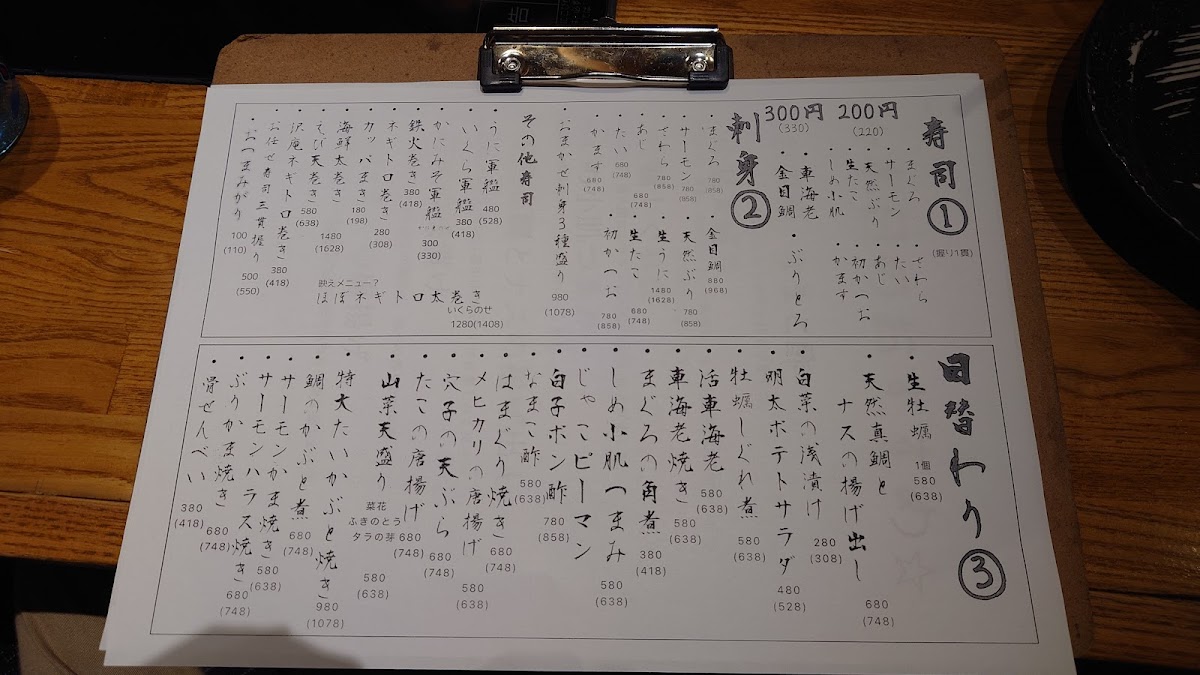 寿司①
(握り1貫)
200円
(220)
・まぐろ
・サーモン
・天然ぶり
・生たこ
・しめ小肌
・さわら
・たい
・あじ
・初かつお
・かます
300円
(330)
・車海老
・金目鯛
・ぶりとろ
刺身②
・まぐろ 780 (858)
・サーモン 780 (858)
・さわら 780 (858)
・あじ 680 (748)
・たい 680 (748)
・かます 680 (748)
・金目鯛 880 (968)
・天然ぶり 780 (858)
・生うに 1480 (1628)
・生たこ 680 (748)
・初かつお 780 (858)
・おまかせ刺身3種盛り 980 (1078)
その他寿司
・うに軍艦 480 (528)
・いくら軍艦 380 (418)
・かにみそ軍艦 300 (330)
・鉄火巻き 380 (418)
・ネギトロ巻き 280 (308)
・カッパ巻き 180 (198)
・海鮮太巻き 1480 (1628)
・えび天巻き 580 (638)
・沢庵ネギトロ巻き 380 (418)
・お任せ寿司三貫握り 500 (550)
・おつまみがり 100 (110)
映えメニュー?
ほぼネギトロ太巻き
いくらのせ
1280(1408)
日替わり③
・生牡蠣 1個 580 (638)
・天然真鯛と
ナスの揚げ出し 680 (748)
・白菜の浅漬け 280 (308)
・明太ポテトサラダ 480 (528)
・牡蠣しぐれ煮 580 (638)
・活車海老 580 (638)
・車海老焼き 580 (638)
・まぐろの角煮 380 (418)
・しめ小肌つまみ 580 (638)
・じゃこピーマン
・白子ポン酢 780 (858)
・なまこ酢 580 (638)
・はまぐり焼き 680 (748)
・メヒカリの唐揚げ 580 (638)
・穴子の天ぷら 680 (748)
・たこの唐揚げ 680 (748)
・山菜天盛り 580 (638)
菜花
ふきのとう
タラの芽
・特大たいかぶと焼き 980 (1078)
・鯛のかぶと煮 680 (748)
・サーモンかま焼き 580 (638)
・サーモンハラス焼き 680 (748)
・ぶりかま焼き 680 (748)
・骨せんべい 380 (418)